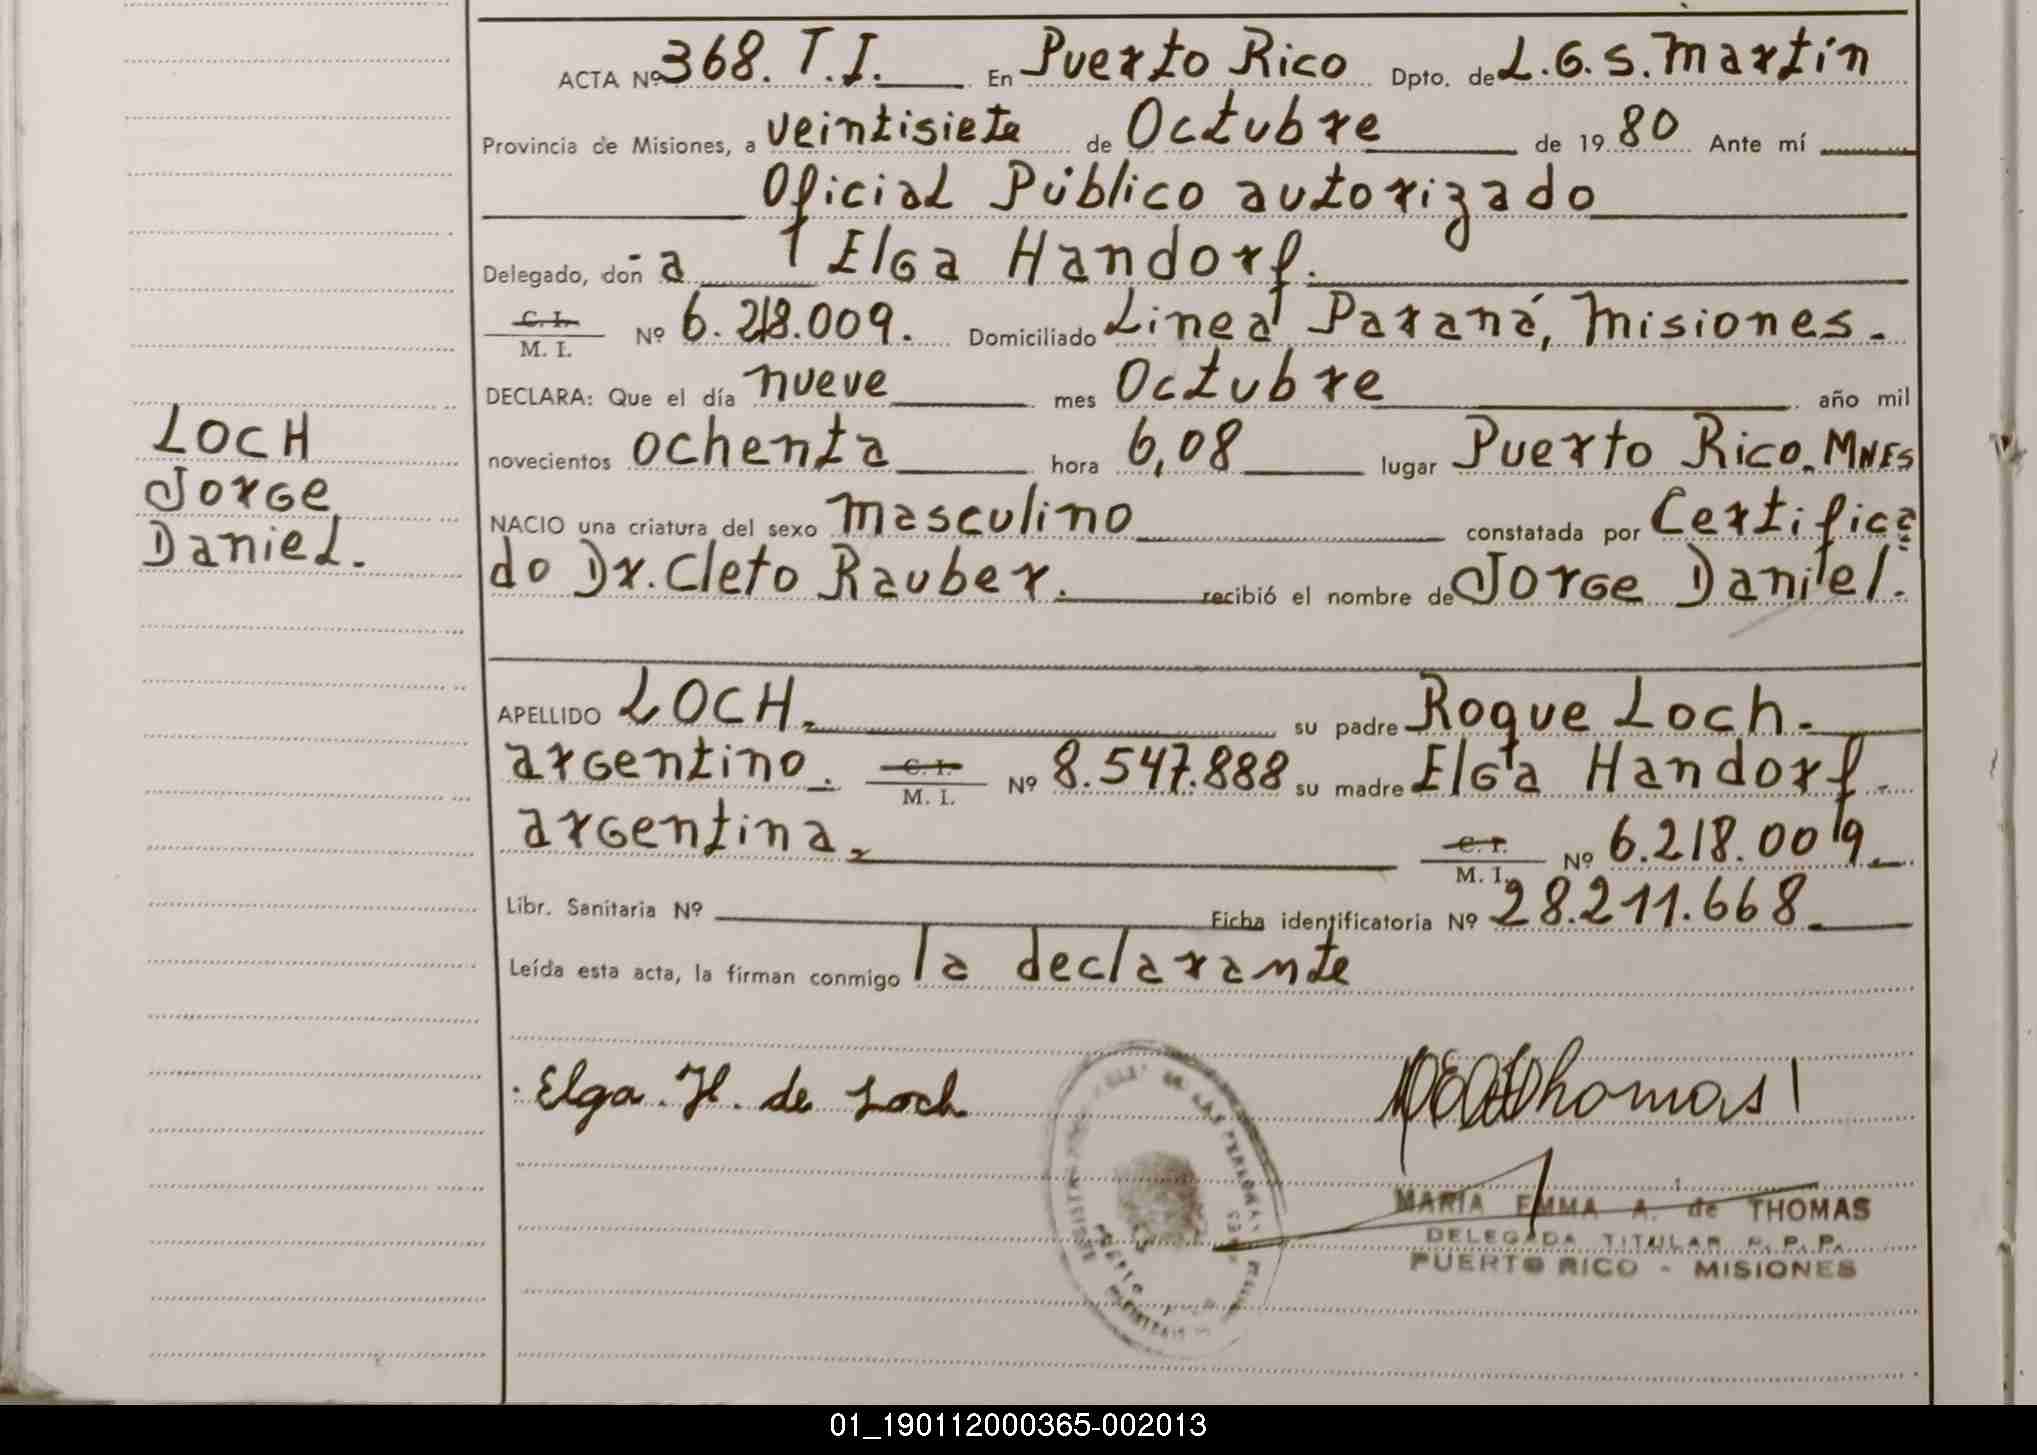 ACTA Nº 368. T.I. En Puerto Rico Dpto. de L.G.S. Martín
Provincia de Misiones, a veintisiete de Octubre de 1980 Ante mí
Oficial Público autorizado
Delegado, don a Elga Handorf.
C. I. M. I. Nº 6.218.009. Domiciliado Linea Paraná, Misiones.
DECLARA: Que el día nueve mes Octubre año mil
novecientos ochenta hora 6,08 lugar Puerto Rico. MNES
NACIO una criatura del sexo masculino constatada por Certifica
do Dr. Cleto Rauber. recibió el nombre de Jorge Daniel.
LOCH
Jorge
Daniel.
APELLIDO LOCH. su padre Roque Loch.
argentino. C. I. M. I. Nº 8.547.888 su madre Elga Handorf.
argentina. C. I. M. I. Nº 6.218.009
Libr. Sanitaria Nº Ficha identificatoria Nº 28.211.668
Leída esta acta, la firman conmigo la declarante
Elga. H. de Loch
Thomas
MARIA EMMA A. de THOMAS
DELEGADA TITULAR R. P. P.
PUERTO RICO - MISIONES
DE LAS PERSONAS
01_190112000365-002013